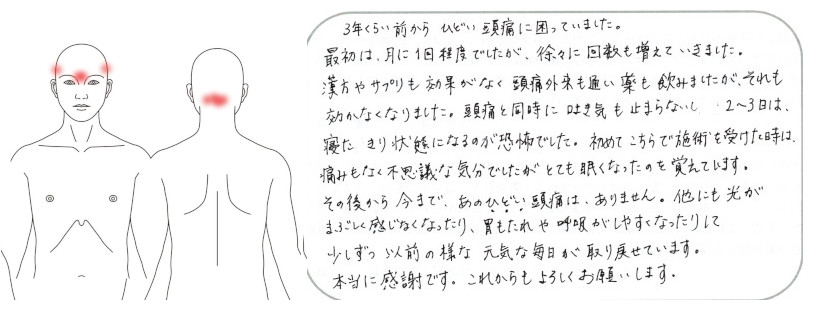 3年くらい前から ひどい頭痛に困っていました。
最初は、月に1回程度でしたが、徐々に回数も増えていきました。
漢方やサプリも効果がなく頭痛外来も通い薬も飲みましたが、それも
効かなくなりました。頭痛と同時に吐き気も止まらないし 2〜3日は、
寝たきり状態になるのが恐怖でした。初めてこちらで施術を受けた時は、
痛みもなく不思議な気分でしたがとても眠くなったのを覚えています。
その後から今まで、あのひどい頭痛は、ありません。他にも光が
まぶしく感じなくなったり、胃もたれや呼吸がしやすくなったりして
少しずつ以前の様な元気な毎日が取り戻せています。
本当に感謝です。これからもよろしくお願いします。